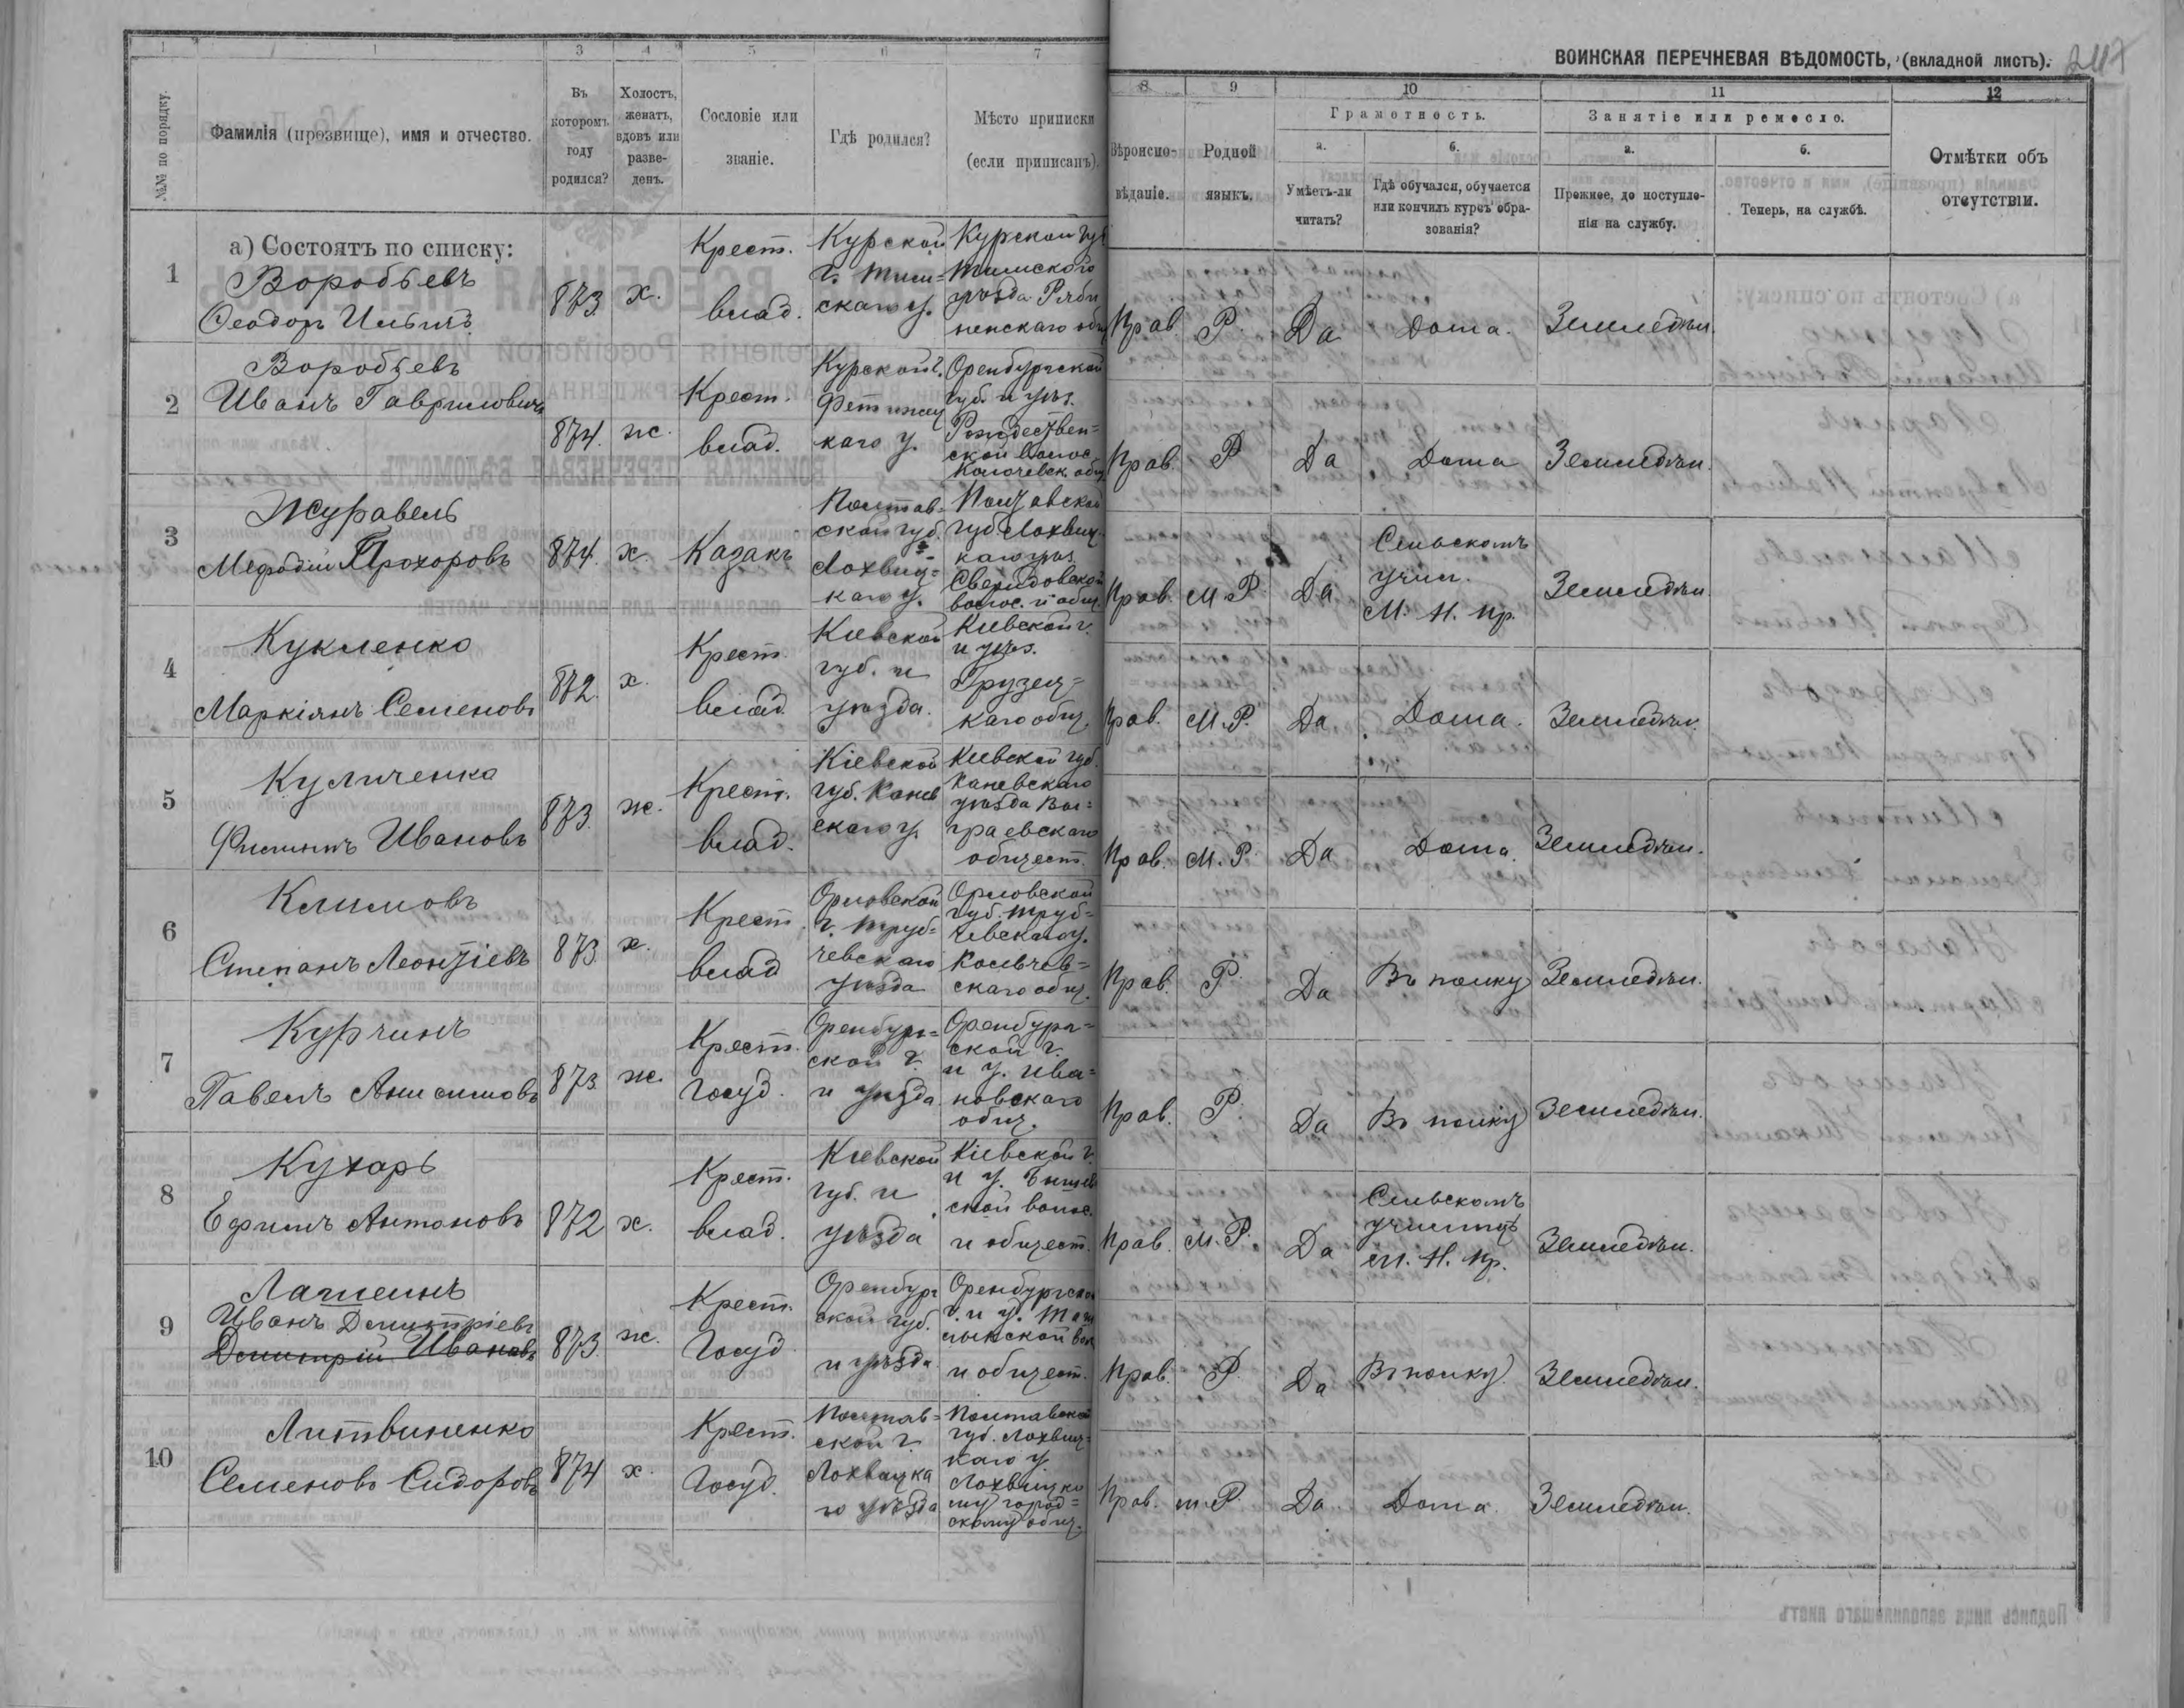 ВОИНСКАЯ ПЕРЕЧНЕВАЯ ВѢДОМОСТЬ, (вкладной листъ).
247
1 3 4 5 6 7 8 9 10 11 12
№№ по порядку.
Фамилія (прозвище), имя и отчество.
Въ которомъ году родился?
Холостъ, женатъ, вдовъ или разве-денъ.
Сословіе или званіе.
Гдѣ родился?
Мѣсто приписки (если приписанъ).
Вѣроиспо-вѣданіе.
Родной языкъ.
Грамотность.
а. Умѣетъ-ли читать?
б. Гдѣ обучался, обучается или кончилъ курсъ обра-зованія?
Занятіе или ремесло.
а. Прежнее, до поступле-нія на службу.
б. Теперь, на службѣ.
Отмѣтки объ отсутствіи.
а) Состоятъ по списку:
1 Воробьевъ
Ѳеодоръ Ильинъ
873 х.
Крест. влад.
Курской г. Тим=скаго у.
Курской губ Тимскаго уѣзда
Прав. Р. Да Дома. Земледѣл.
2 Воробьевъ
Иванъ Гавриловичъ
874. ж.
Крест. влад.
Курской г.
каго у.
Оренбургской губ. и уѣз. Рождествен=ской волос.
Прав. Р Да Дома Земледѣл.
3 Журавель
Мефодій Прохоровъ
874. х. Казакъ
Полтав=ской губ. Лохвиц=каго у.
Полтавской губ Лохвиц каго уѣз Свиридовской волос. и общ.
Прав. М.Р. Да
Сельскомъ учил. М. Н. Пр.
Земледѣл
4 Кукленко
Маркіянъ Семеновъ
872. х.
Крест. влад
Кіевской губ. и уѣзда.
Кіевской г. и уѣз. Грузец=каго общ.
Прав. М.Р. Да Дома. Земледѣл.
5 Куличенко
Филиппъ Ивановъ
873. ж.
Крест. влад.
Кіевской губ. Канев скаго у.
Кіевской губ. Каневскаго уѣзда
граевскаго общест.
Прав. М.Р. Да Дома. Земледѣл.
6 Климовъ
Степанъ Леонтіевъ
873. х.
Крест. влад
Орловской г. Труб=чевскаго уѣзда
Орловской губ. Труб=чевскаго у.
скаго общ.
Прав. Р. Да Въ полку Земледѣл.
7 Курчинъ
Павелъ Анисимовъ
873. ж.
Крест. Госуд.
Оренбург=ской г. и уѣзда
Оренбург=ской г. и у. Ива=новскаго общ.
Прав. Р. Да Въ полку Земледѣл.
8 Кухарь
Ефимъ Антоновъ
872 х.
Крест. влад.
Кіевской губ. и уѣзда
Кіевской г. и у. Бышев ской волос. и общест.
Прав. М.Р. Да
Сельскомъ училищѣ М. Н. Пр.
Земледѣл.
9
Иванъ Дмитріевъ
Дмитрій Ивановъ
873. ж.
Крест. Госуд
Оренбург ской губ. и уѣзда
Оренбургской г. и у.
и общест.
Прав. Р. Да Въ полку Земледѣл.
10 Литвиненко
Семеновъ Сидоровъ
874 х.
Крест. Госуд.
Полтав=ской г. Лохвицка го уѣзда
Полтавской губ. Лохвиц=каго у. Лохвицко му город=скому общ.
Прав. м.Р. Да Дома. Земледѣл.